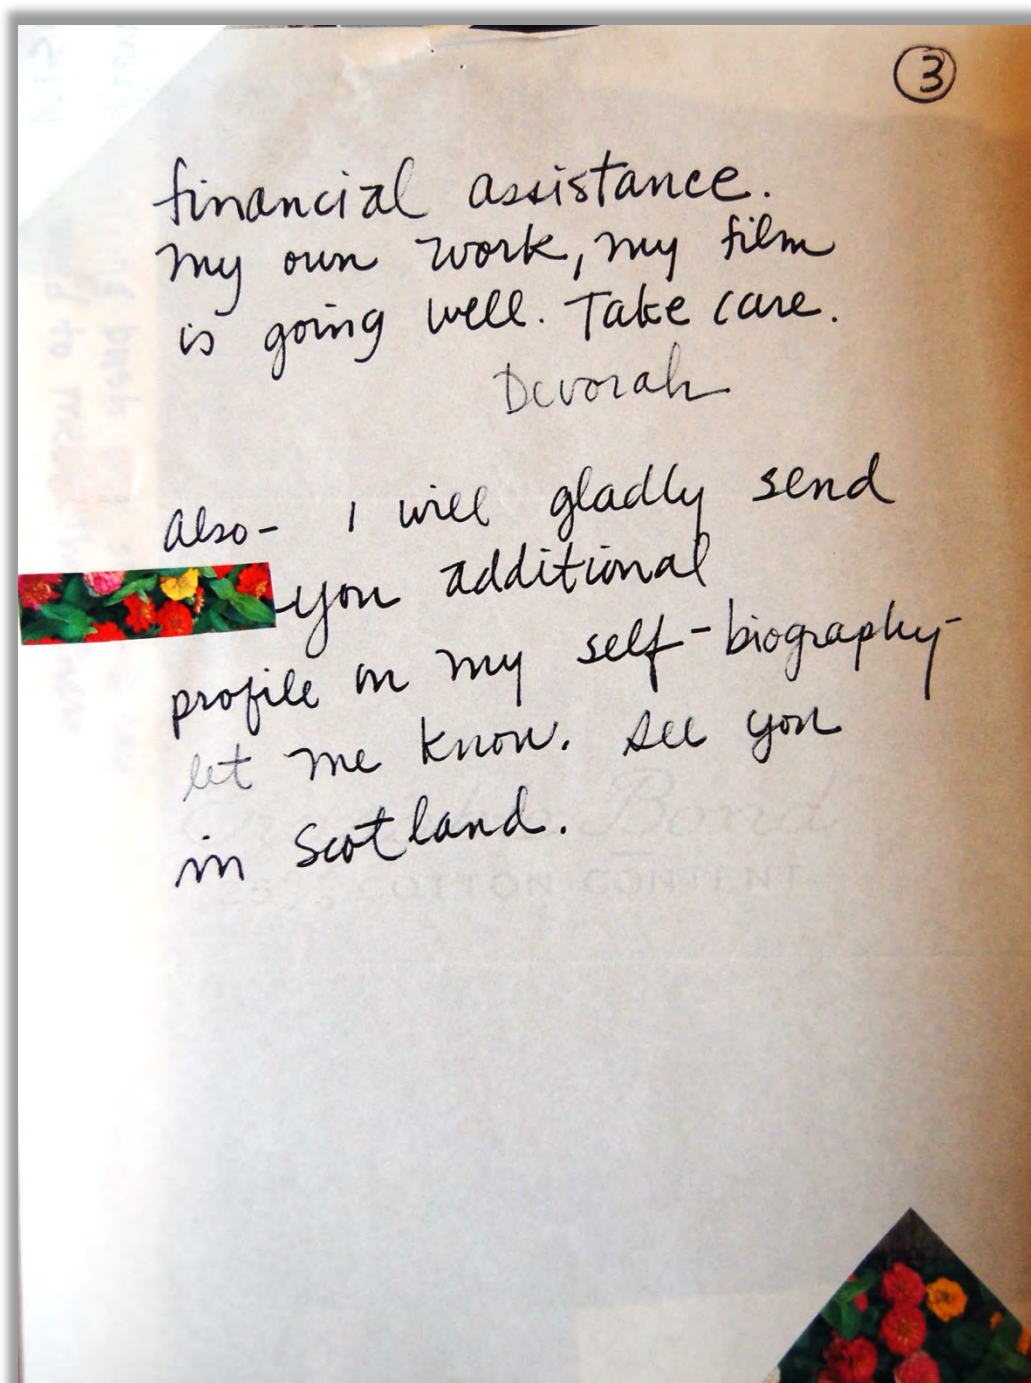 ③
financial assistance.
My own work, my film
is going well. Take care.
Devorah
Also- I will gladly send
you additional
profile on my self-biography-
let me know. See you
in Scotland.
Bond
COTTON CONTENT